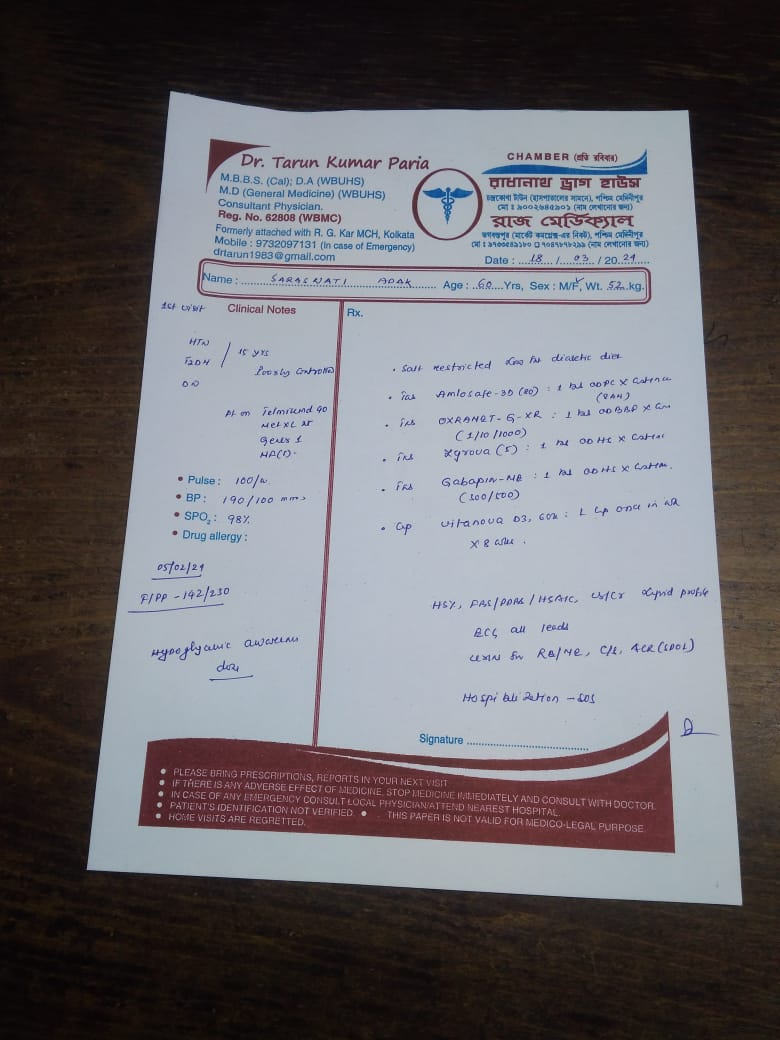 Dr. Tarun Kumar Paria
M.B.B.S. (Cal); D.A (WBUHS)
M.D (General Medicine) (WBUHS)
Consultant Physician.
Reg. No. 62808 (WBMC)
Formerly attached with R. G. Kar MCH, Kolkata
Mobile : 9732097131 (In case of Emergency)
drtarun1983@gmail.com
CHAMBER (প্রতি রবিবার)
রাধানাথ ড্রাগ হাউস
চন্দ্রকোণা টাউন (হাসপাতালের সামনে), পশ্চিম মেদিনীপুর
মোঃ ৯০০২৬৪৫৯০১ (নাম লেখানোর জন্য)
রাজ মেডিক্যাল
(মার্কেট কমপ্লেক্স-এর নিকট), পশ্চিম মেদিনীপুর
(নাম লেখানোর জন্য)
Date : 18 / 03 / 2021
Name : SARASWATI ADAK Age : 60 Yrs, Sex : M/F, Wt. 52 kg.
1st visit Clinical Notes
HTN
T2DM / 15 yrs
Poorly Controlled
DN
Pt on Telmikind 40
Gemer 1
• Pulse : 100/m
• BP : 190/100 mm
• SPO2 : 98%
• Drug allergy :
05/02/21
F/PP - 142/230
Hypoglycemic awareness
Rx.
• Salt restricted low fat diabetic diet
• Tab Amlosafe-3D : 1 tab OD PC X
• Tab OXRAMET-G-XR : 1 tab OD BBF X
(1/10/1000)
• Tab (5) : 1 tab OD HS X
• Tab Gabapin-NB : 1 tab OD HS X
• Cap Vitanova D3, 60k : 1 cap once in
X 8
FBS/PPBS/HbA1C, Ur/Cr Lipid profile
ECG all leads
Urine for RE/ME, C/S, ACR (SPOT)
Hospitalization - SOS
Signature
• PLEASE BRING PRESCRIPTIONS, REPORTS IN YOUR NEXT VISIT
• IF THERE IS ANY ADVERSE EFFECT OF MEDICINE, STOP MEDICINE IMMEDIATELY AND CONSULT WITH DOCTOR.
• IN CASE OF ANY EMERGENCY CONSULT LOCAL PHYSICIAN/ATTEND NEAREST HOSPITAL.
• PATIENT'S IDENTIFICATION NOT VERIFIED. • THIS PAPER IS NOT VALID FOR MEDICO-LEGAL PURPOSE
• HOME VISITS ARE REGRETTED.